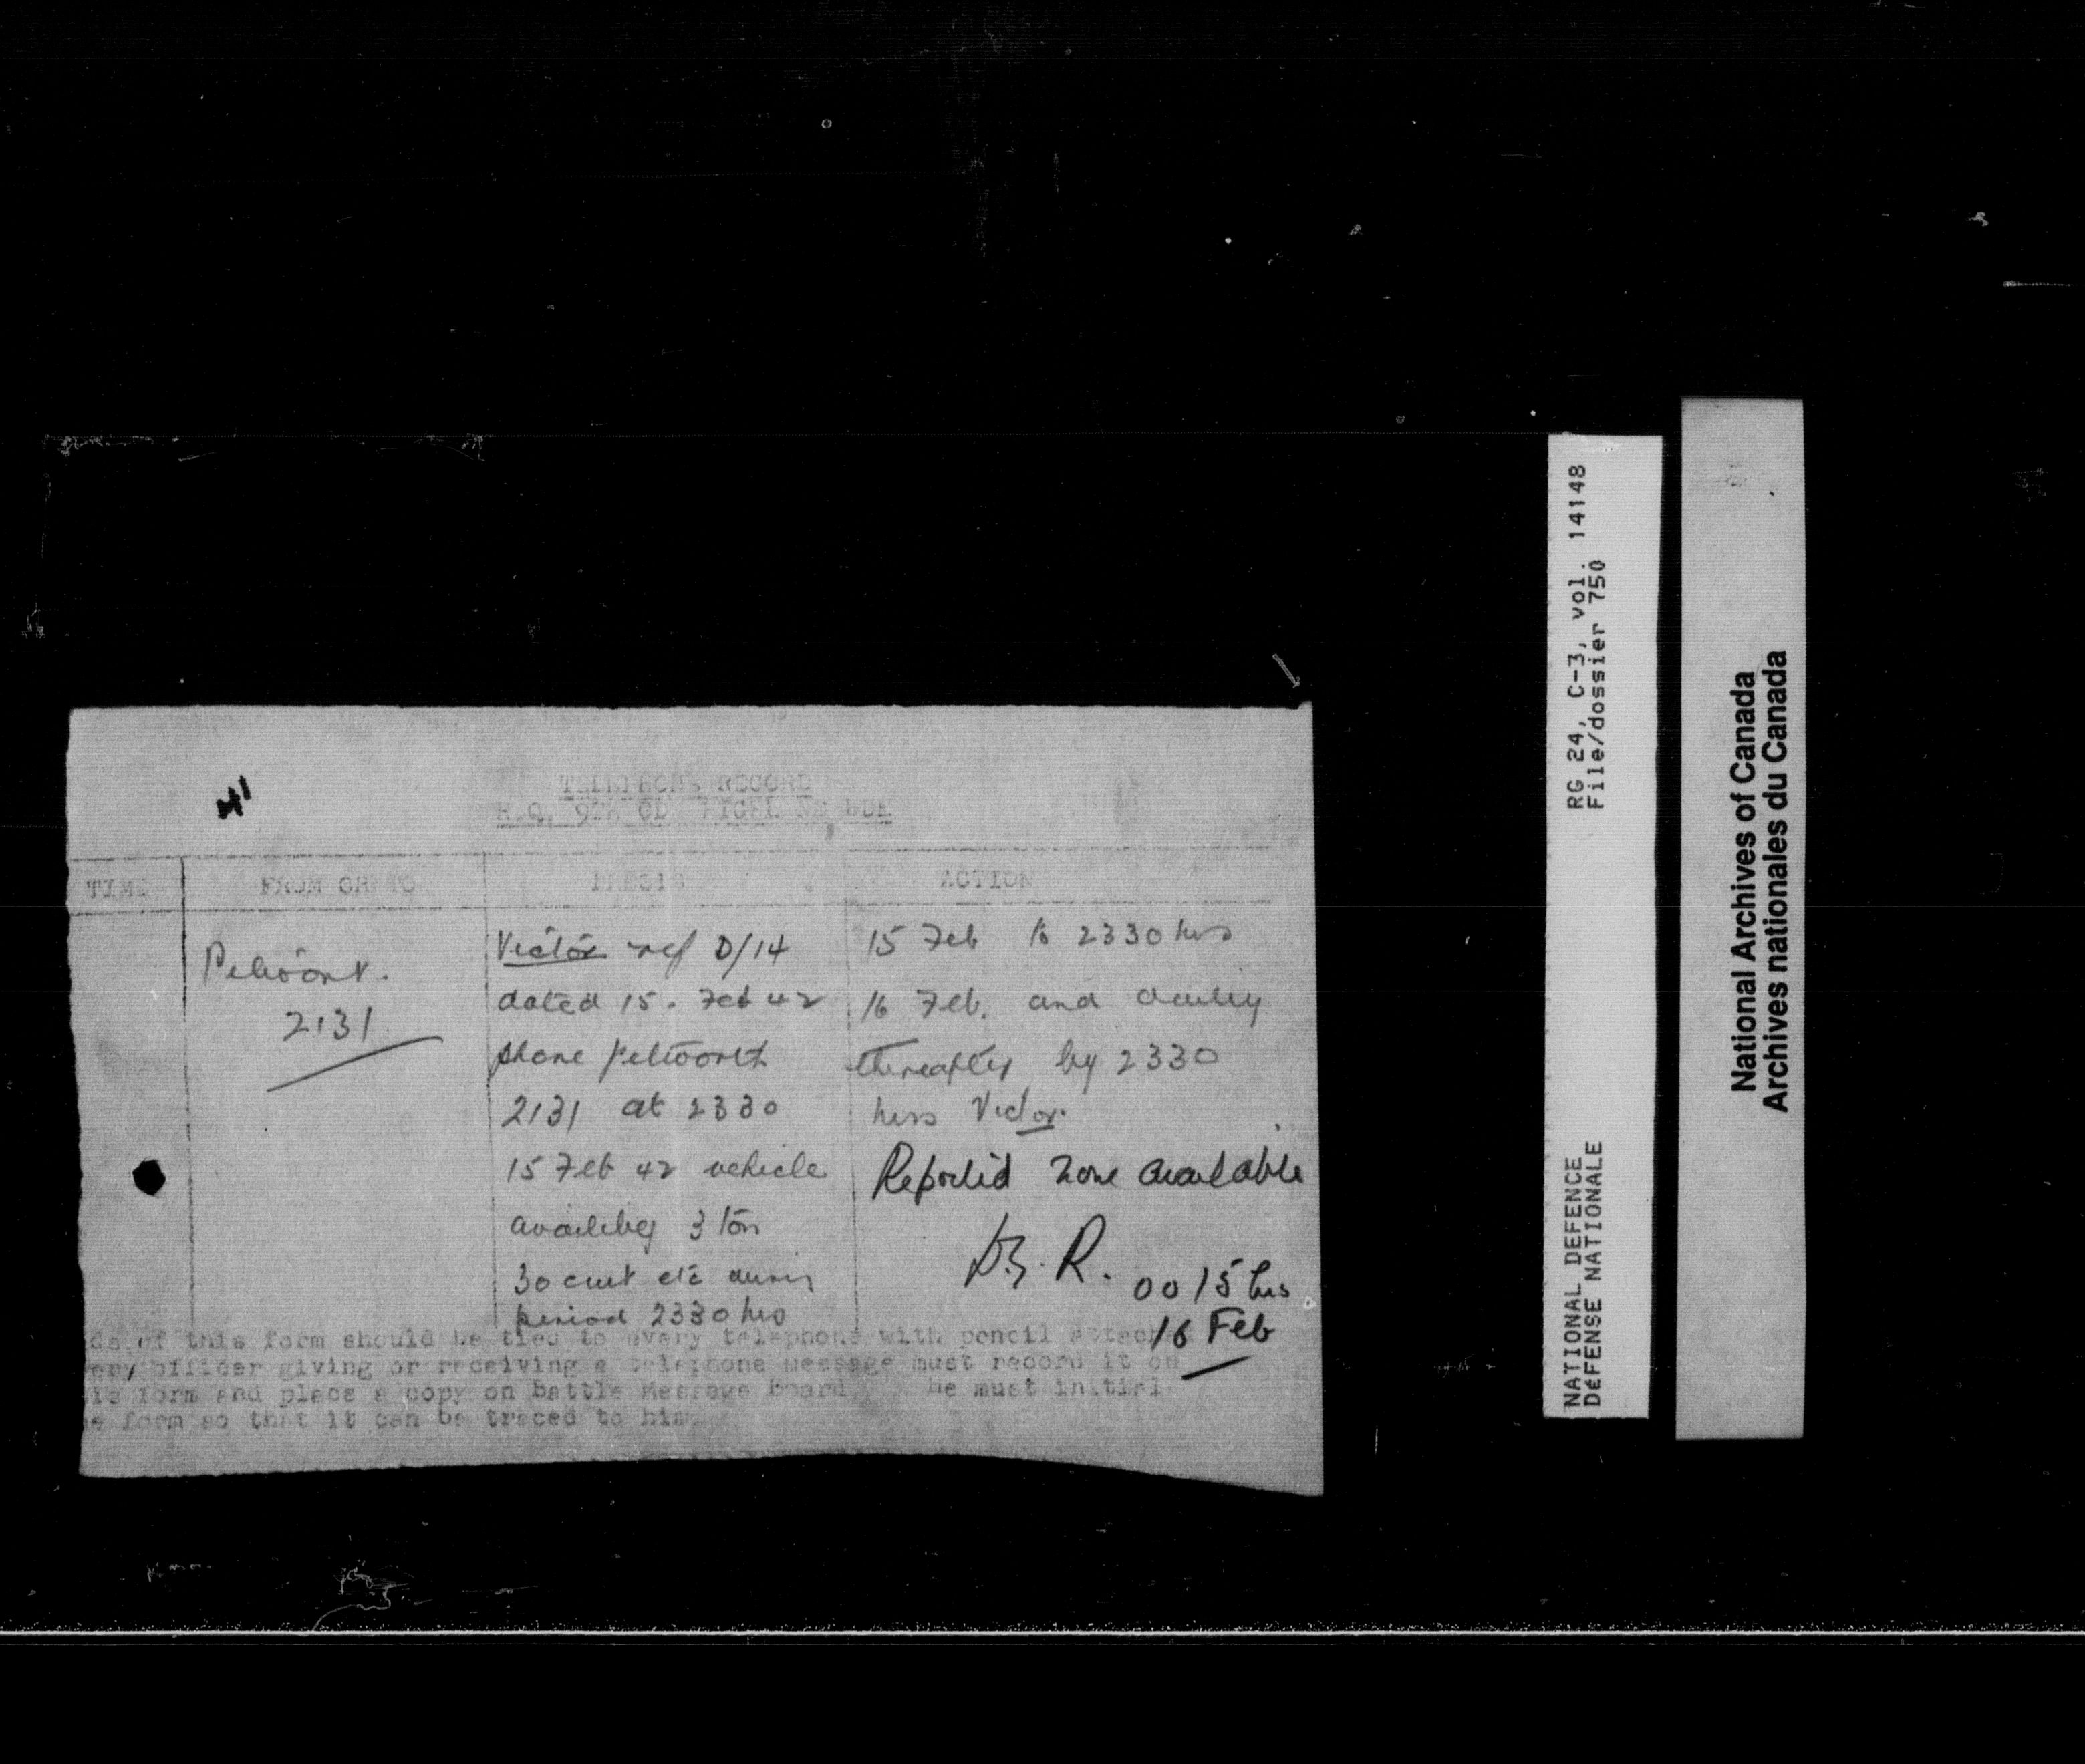 41
TELEPHONE RECORD
H.Q. CDN FIELD
TIME FROM OR TO PRECIS ACTION
Petworth.
2131
Victor ref D/14
dated 15. Feb 42
phone Petworth
2131 at 2330
15 Feb 42 vehicle
3 ton
30 cwt etc during
period 2330 hrs
15 Feb to 2330 hrs
16 Feb. and daily
thereafter by 2330
hrs Victor.
Reported none available
R.
0015 hrs
16 Feb
ds of this form should be tied to every telephone with pencil attac
very officer giving or receiving a telephone message must record it on
is form and place a copy on Battle Message Board he must initial
e form so that it can be traced to him.
RG 24, C-3, vol. 14148
File/dossier 750
NATIONAL DEFENCE
DéFENSE NATIONALE
National Archives of Canada
Archives nationales du Canada